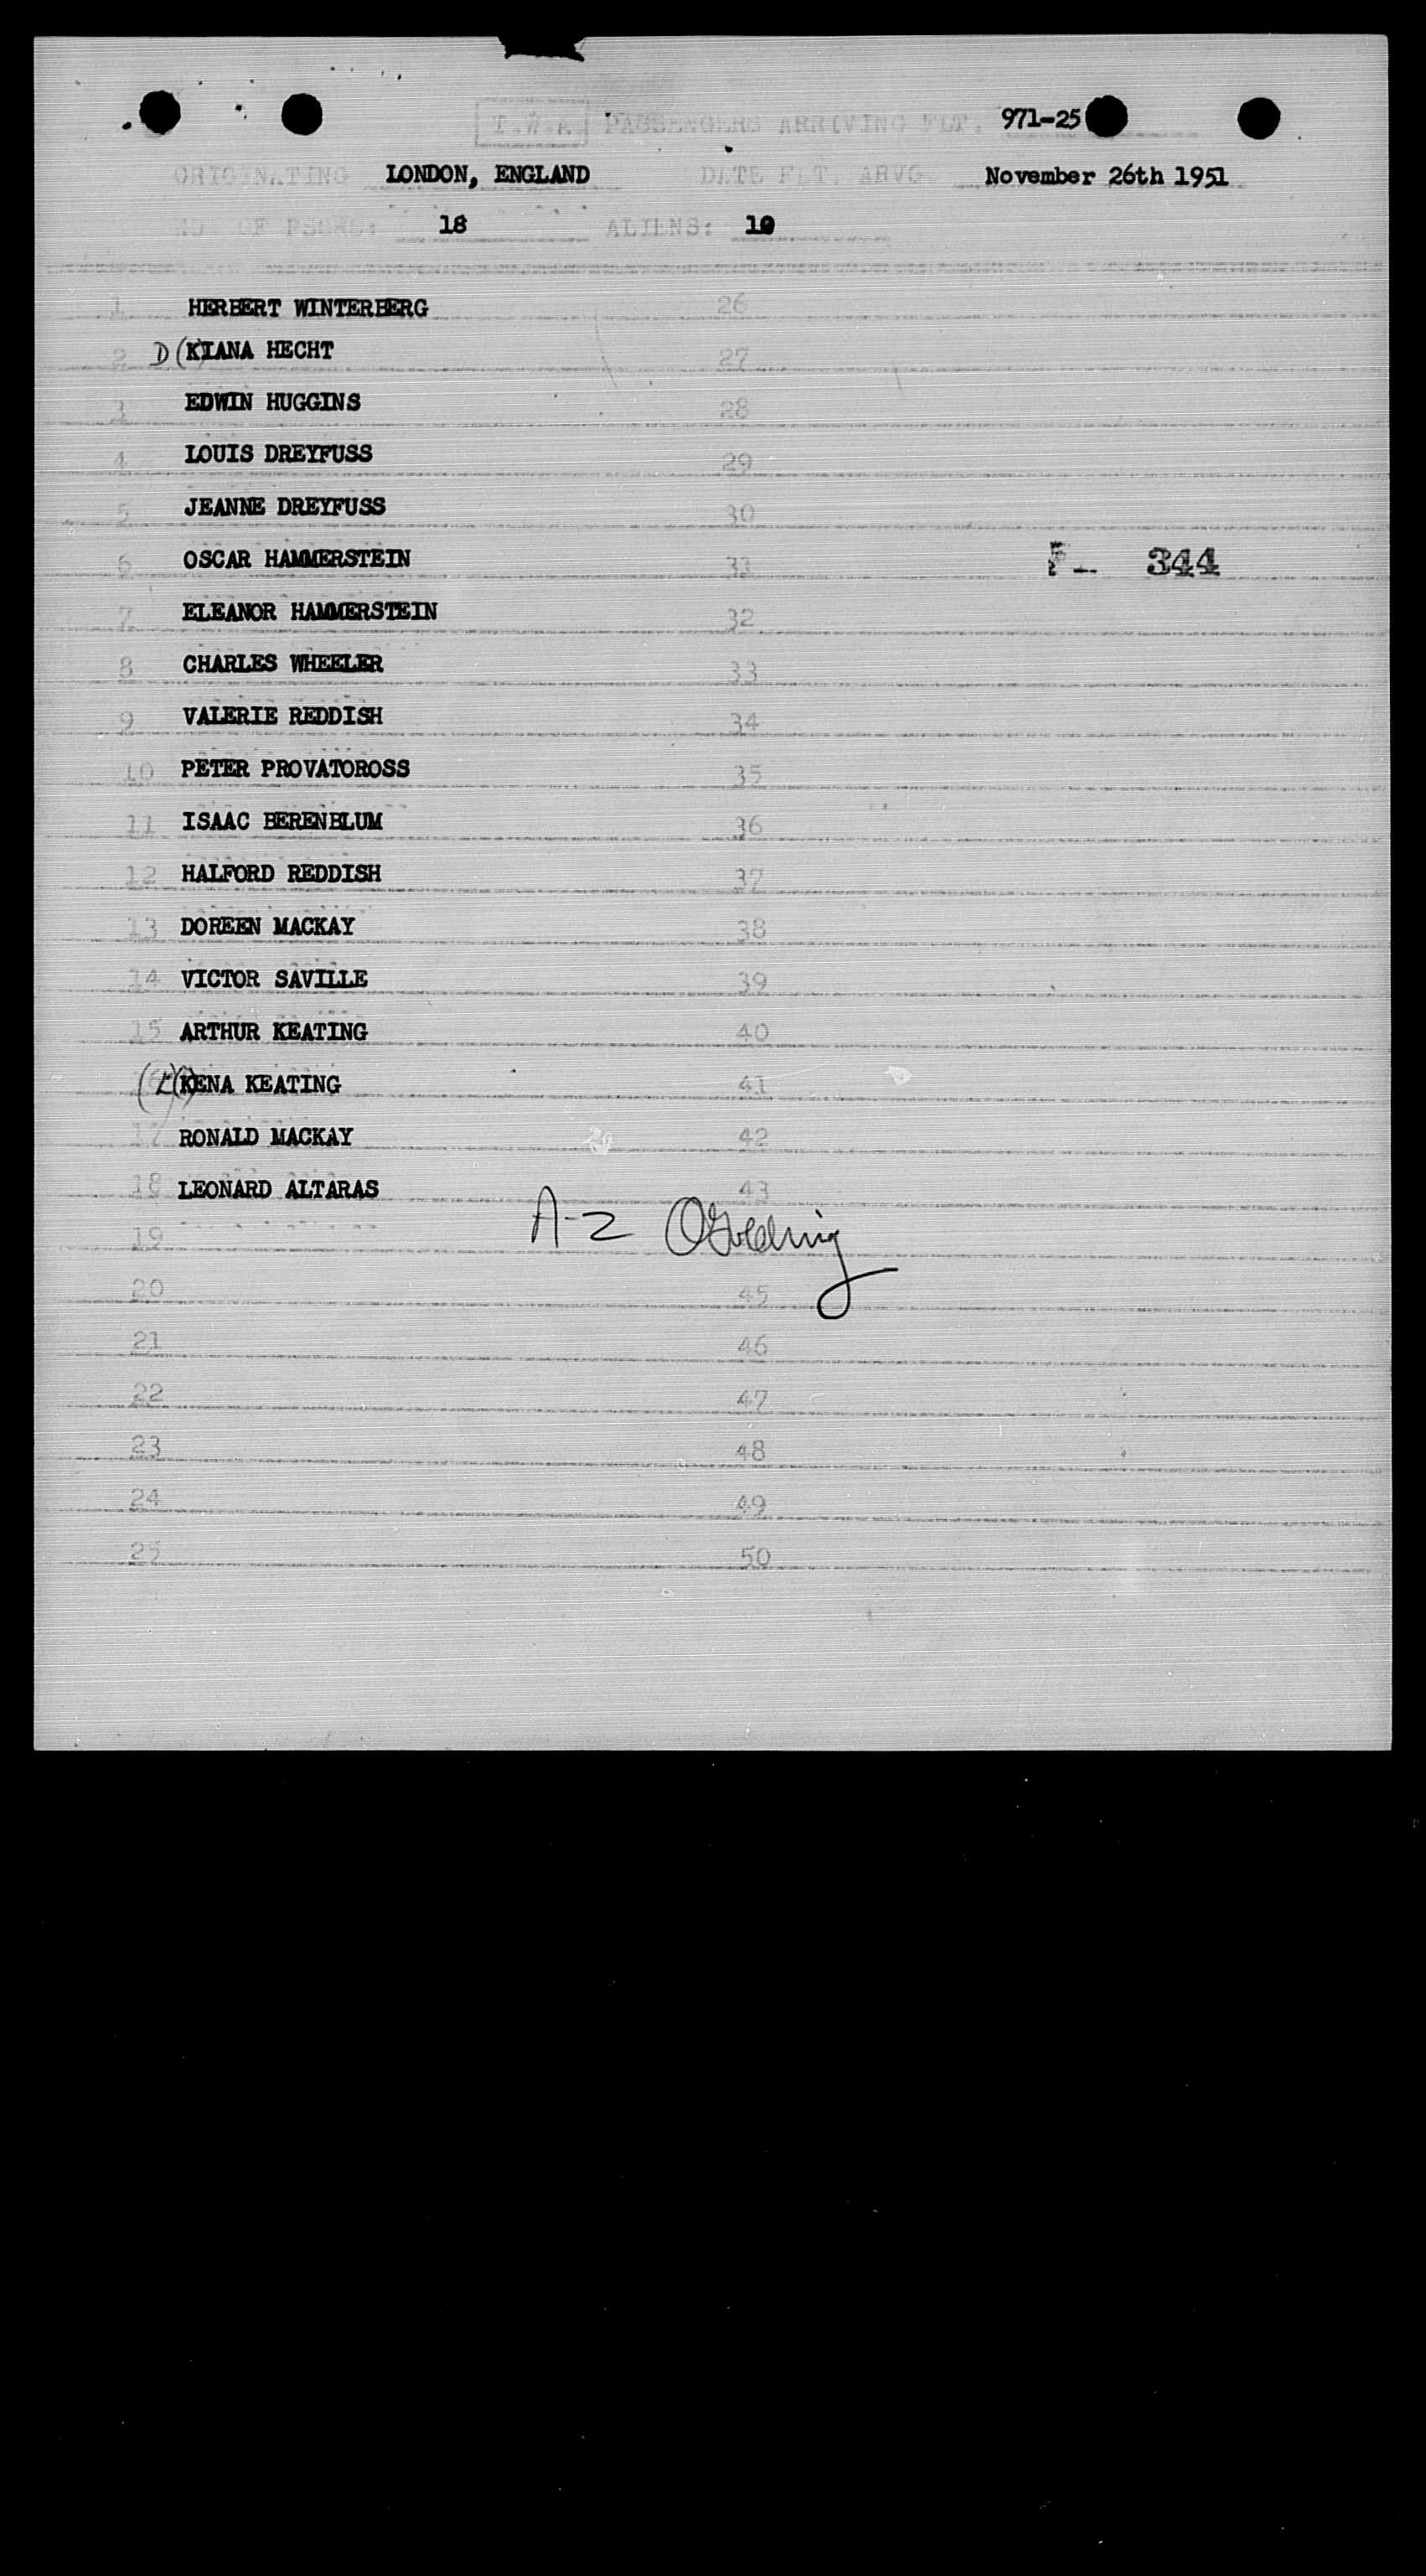 T.W.A PASSENGERS ARRIVING FLT. 971-25
ORIGINATING LONDON, ENGLAND DATE FLT. ARVG November 26th 1951
NO OF PSGRS: 18 ALIENS: 10
1 HERBERT WINTERBERG 26
2 D (KIANA HECHT 27
3 EDWIN HUGGINS 28
4 LOUIS DREYFUSS 29
5 JEANNE DREYFUSS 30
6 OSCAR HAMMERSTEIN 31
F- 344
7 ELEANOR HAMMERSTEIN 32
8 CHARLES WHEELER 33
9 VALERIE REDDISH 34
10 PETER PROVATOROSS 35
11 ISAAC BERENBLUM 36
12 HALFORD REDDISH 37
13 DOREEN MACKAY 38
14 VICTOR SAVILLE 39
15 ARTHUR KEATING 40
(L)(KENA KEATING 41
17 RONALD MACKAY 42
18 LEONARD ALTARAS 43
19 A-2 OGolding
20 45
21 46
22 47
23 48
24 49
25 50